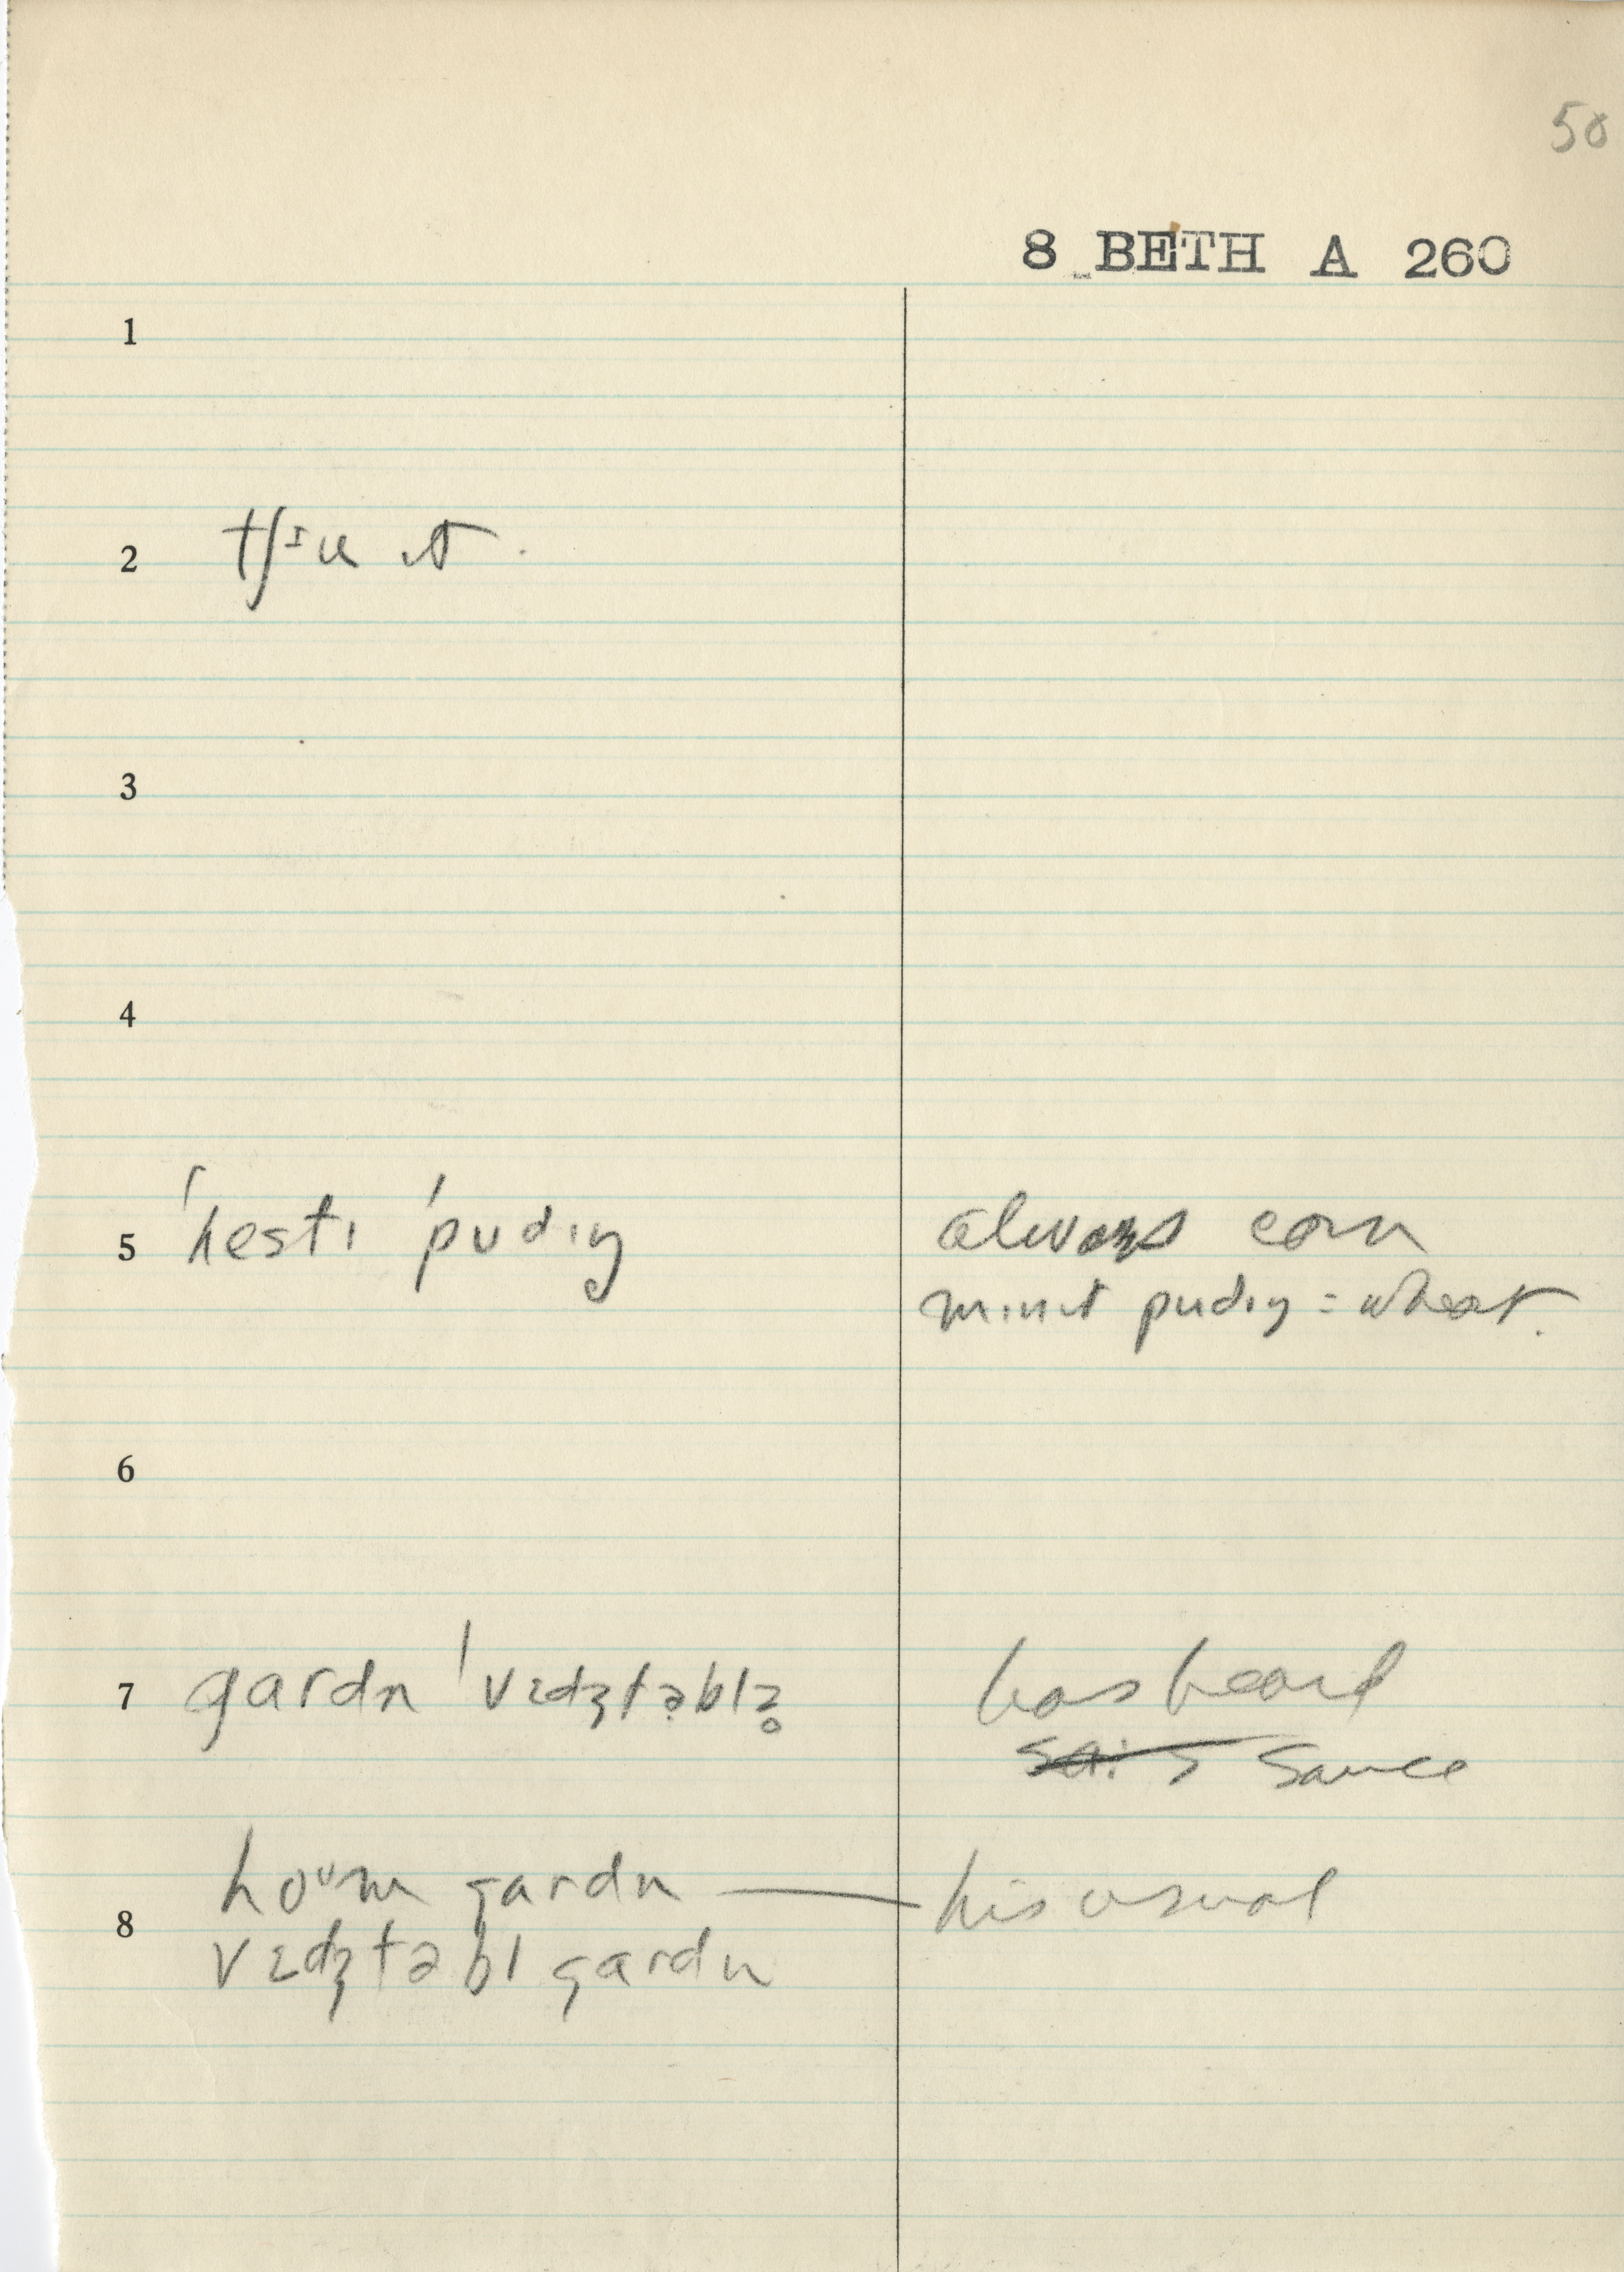 50
8 BETH A 260
1
2 tʃɪu ɪt.
3
4
5 ˈhestɪ ˈpudɪŋ always corn
mɪnɪt pudɪŋ = wheat.
6
7 gardn ˈvɛdʒtəblz̥ has heard
sɑ: s sauce
8 hoᵘm gardn — his usual
vɛdʒtəbl gardn